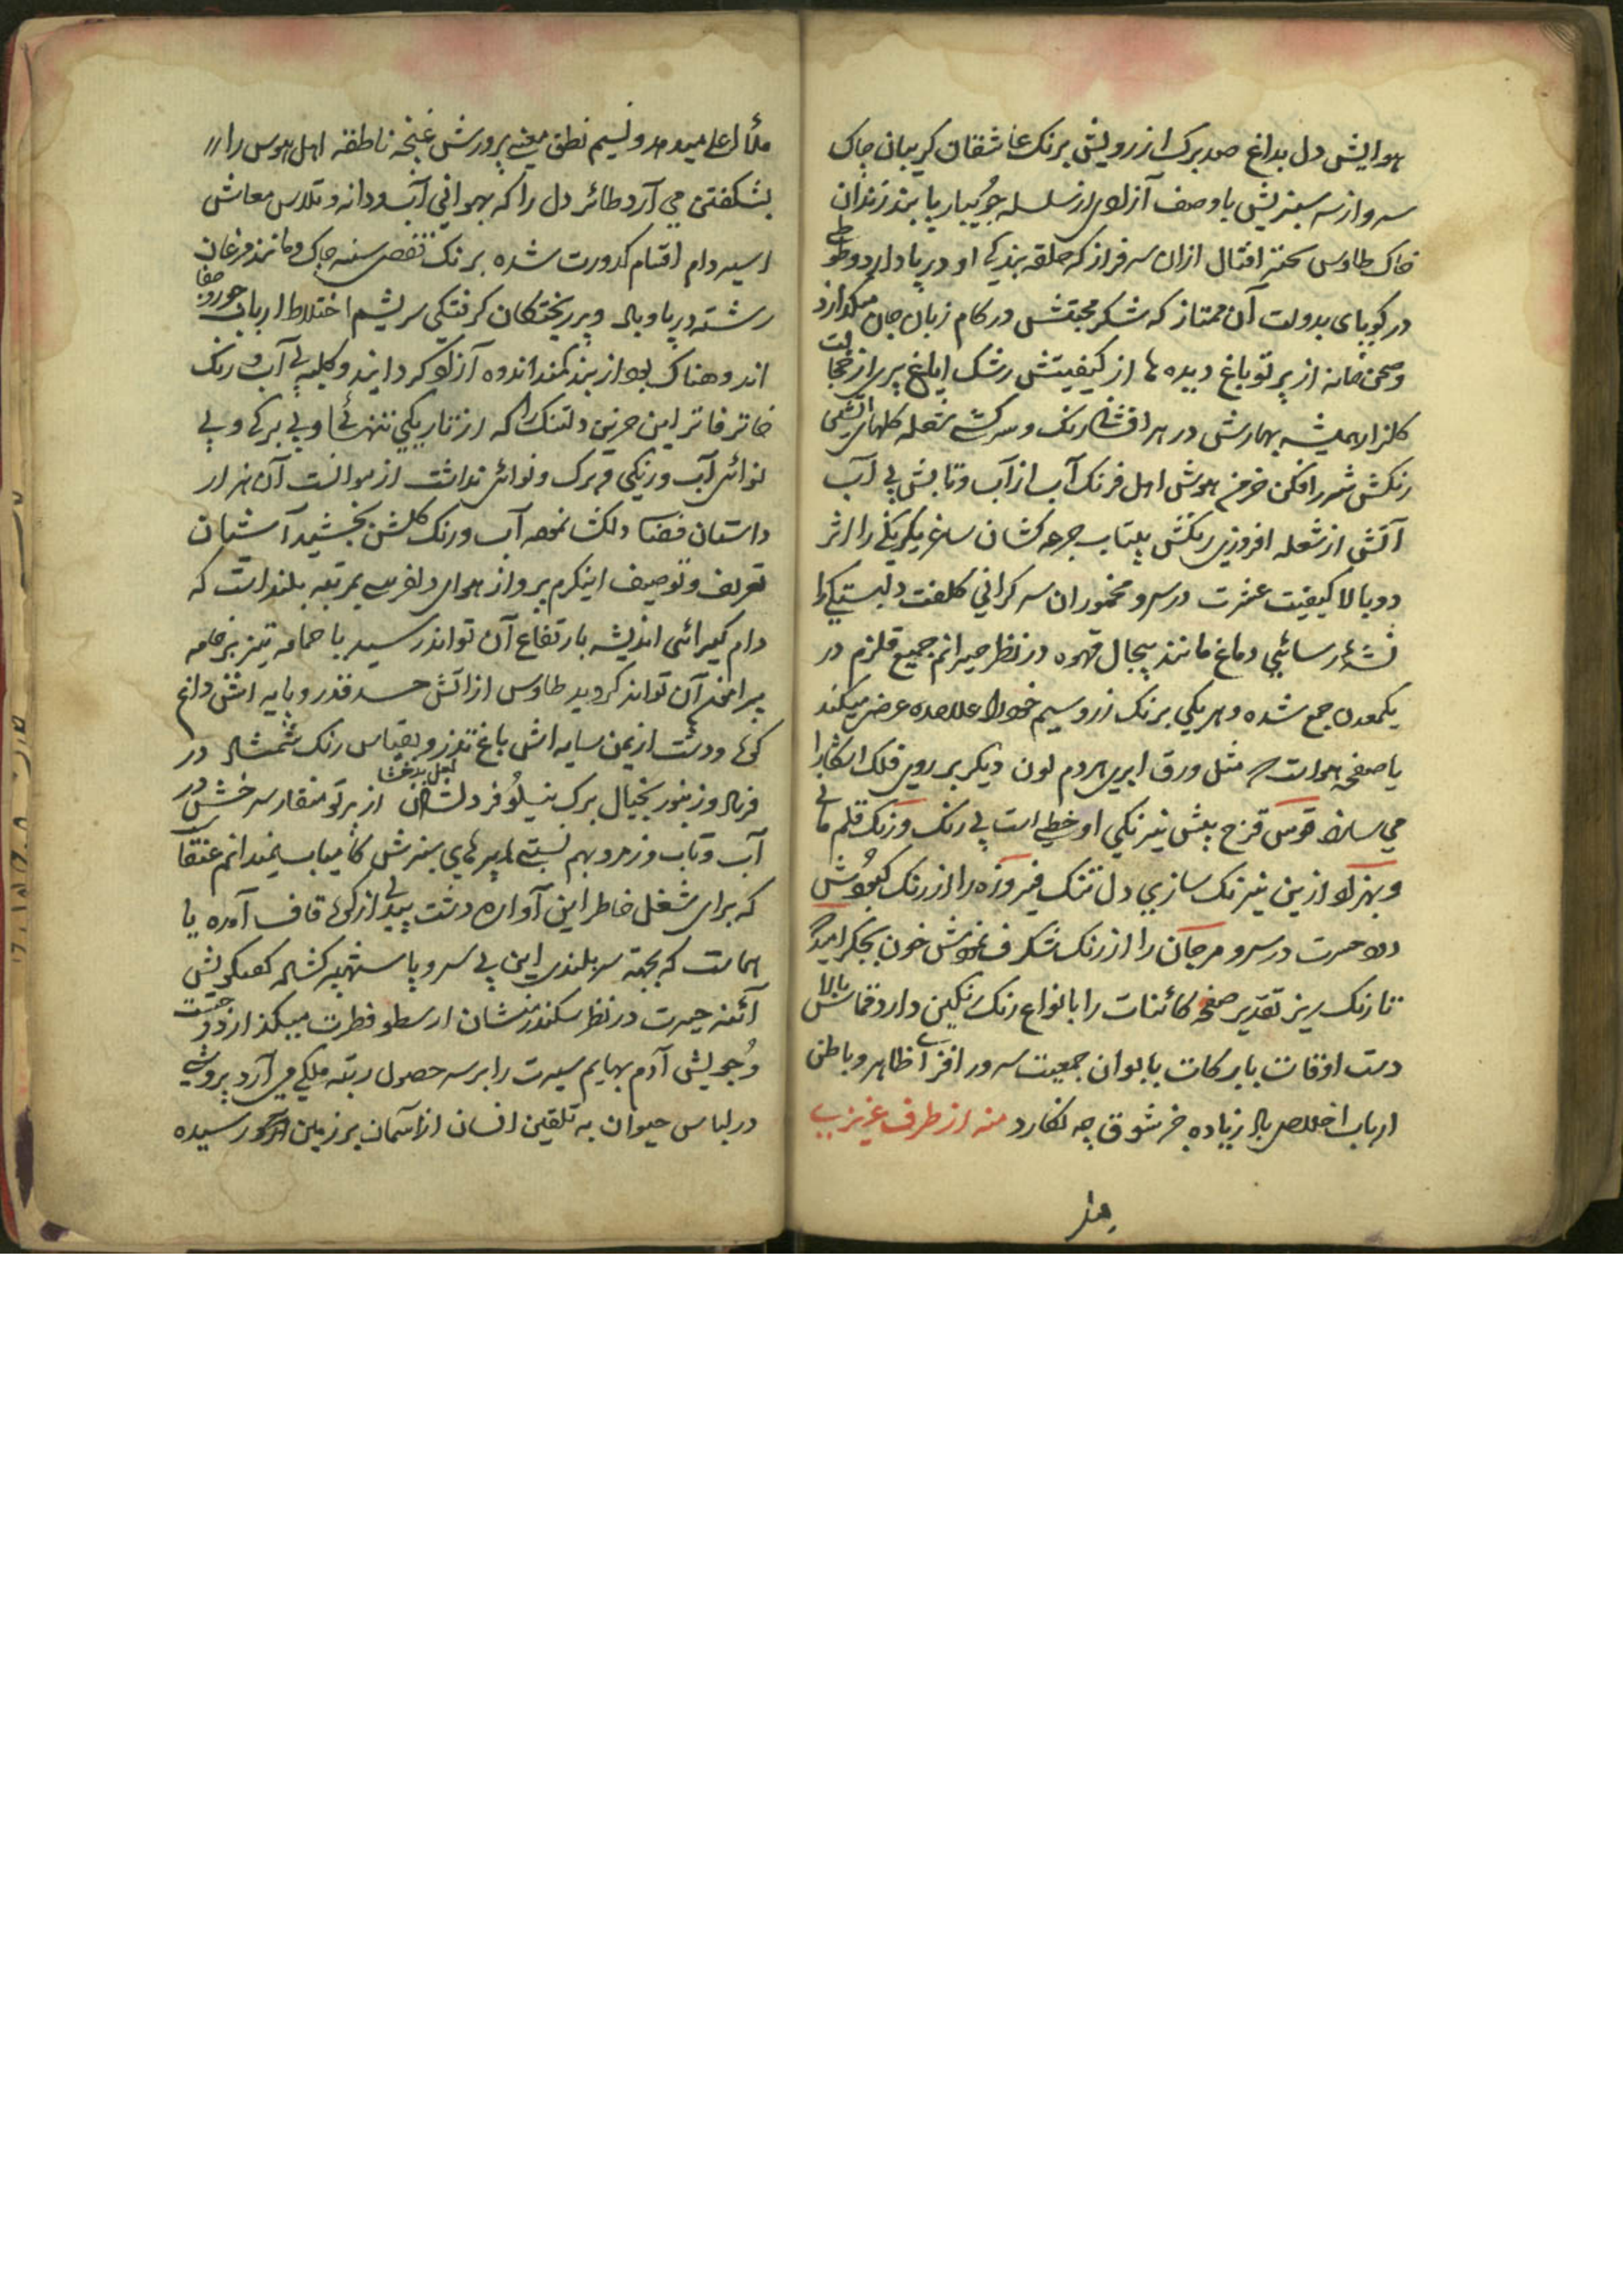 هوایش دل بداغ صد برک از رویش برنک عاشقان کریبان چاک
سرو از سر سبزیش با وصف آزادی از سلسله جویبار پا بند زندان
خاک طاوس از ان سرفراز که حلقه بندکی او در پا دارد و طوطی
در کویای بدولت آن ممتاز که شکر محبتش در کام زبان جان میکدازد
و صحن خانه از پرتو باغ دیده ها از کیفیتش رشک ایاغ پری از خجالت
کلزار همیشه بهارش در هر افشانی رنک و سرکشی شعله کلهای آتشی
رنکش شرر افکن خرمن هوش اهل فرنک آب از آب و تابش بی آب
آتش از شعله افروزی رنکش بیتاب جرعه کشان ساغر یکرنکی را اثر
دوبالا کیفیت عشرت در سر و مخموران سرکرانی کلفت دلبستکی را
نشهٔ رسائی دماغ مانند پیجال قهوه در نظر حیرانم جمیع قلزم در
یکمعدن جمع شده و هر یکی برنک زر و سیم خود را علاحده عرض میکند
یا صفحه هواست که مثل ورق ابری هر دم لون دیکر بر روی فلک اشکارا
می سازد قوس قزح پیش نیرنکی او خطی است بی رنک و زنک قلم مانی
و بهزاد ازین نیرنک سازی دل تنک فیروزه را از رنک کبودش
دود حسرت در سر و مرجان را از رنک شنکرف نمودش خون بجکر امید که
تا رنک ریز تقدیر صفحه کائنات را بانواع رنک رنکین دارد قماش بالا
دست اوقات با برکات بابوان جمعیت سرور افزای ظاهر و باطن
ارباب اخلاص باد زیاده جز شوق چه نکارد منه از طرف عزیزی
ملأ اعلی میدمد و نسیم نطق معنی پرورش غنچه ناطقه اهل هوس را
بشکفتن می آرد طائر دل را که بهوائی آب و دانه و تلاس معاش
اسیر دام اقسام کدورت شده برنک قفص سینه چاک و مانند مرغان
رشته در پا و بال و پر ریختکان کرفتکی سریشم اختلاط ارباب جور و جفا
اندوهناک بود از بند کمند اندوه آزاد کردانید و کلبه بی آب و رنک
خاتر فاتر این حزین دلتنک را که از تاریکی تنهائی و بی برکی و بی
نوائی آب و رنکی و برک و نوائی نداشت از موانست آن هزار
داستان فضا دلکشا نمود آب و رنک کلشن بخشید آشیان
تعریف و توصیف اینکرم پرواز هوای دلفریبی بمرتبه بلند است که
دام کیرائی اندیشه بارتفاع آن تواند رسید یا حمامه تیز پر خامه
پیرامن آن تواند کردید طاوس از اتش حسد قدر و پایه اش داغ
کوه و دشت از یمن سایه اش باغ تذرو بقیاس رنک شمشاد در
فریاد و زنبور بخیال برک نیلوفر دلشاد لعل بدخشان از پرتو منقار سرخش در
آب و تاب و زمرد بهم نسبتی پرهای سبزش کامیاب نمیدانم عنقا
که برای شغل خاطر این آواره دشت بیدلی از کوه قاف آمده یا
هماست که بجهته سربلندی این بی سر و پا کشاد کفتکویش
آئنه حیرت در نظر سکندر منشان ارسطو فطرت میکذارد و حقیت
وجویش آدم بهایم سیرت را بر سر حصول رتبه ملکی می آرد
در لباس حیوان به تلقین انسان از اسمان بر زمین رسیده